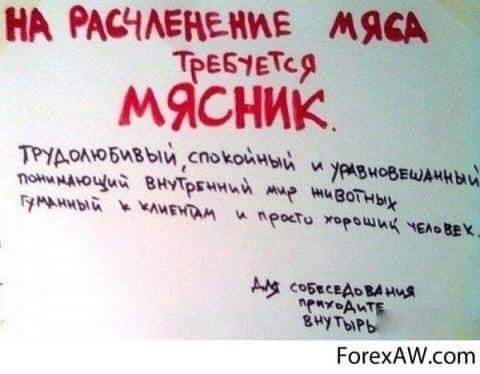 НА РАСЧЛЕНЕНИЕ МЯСА
ТРЕБУЕТСЯ
МЯСНИК.
ТРУДОЛЮБИВЫЙ, СПОКОЙНЫЙ И УРАВНОВЕШАННЫЙ
ПОНИМАЮЩИЙ ВНУТРЕННИЙ МИР ЖИВОТНЫХ
ГУМАННЫЙ К КЛИЕНТАМ И ПРОСТО ХОРОШИЙ ЧЕЛОВЕК.
ДЛЯ СОБЕСЕДОВАНИЯ
ПРИХОДИТЕ
ВНУТЫРЬ
ForexAW.com